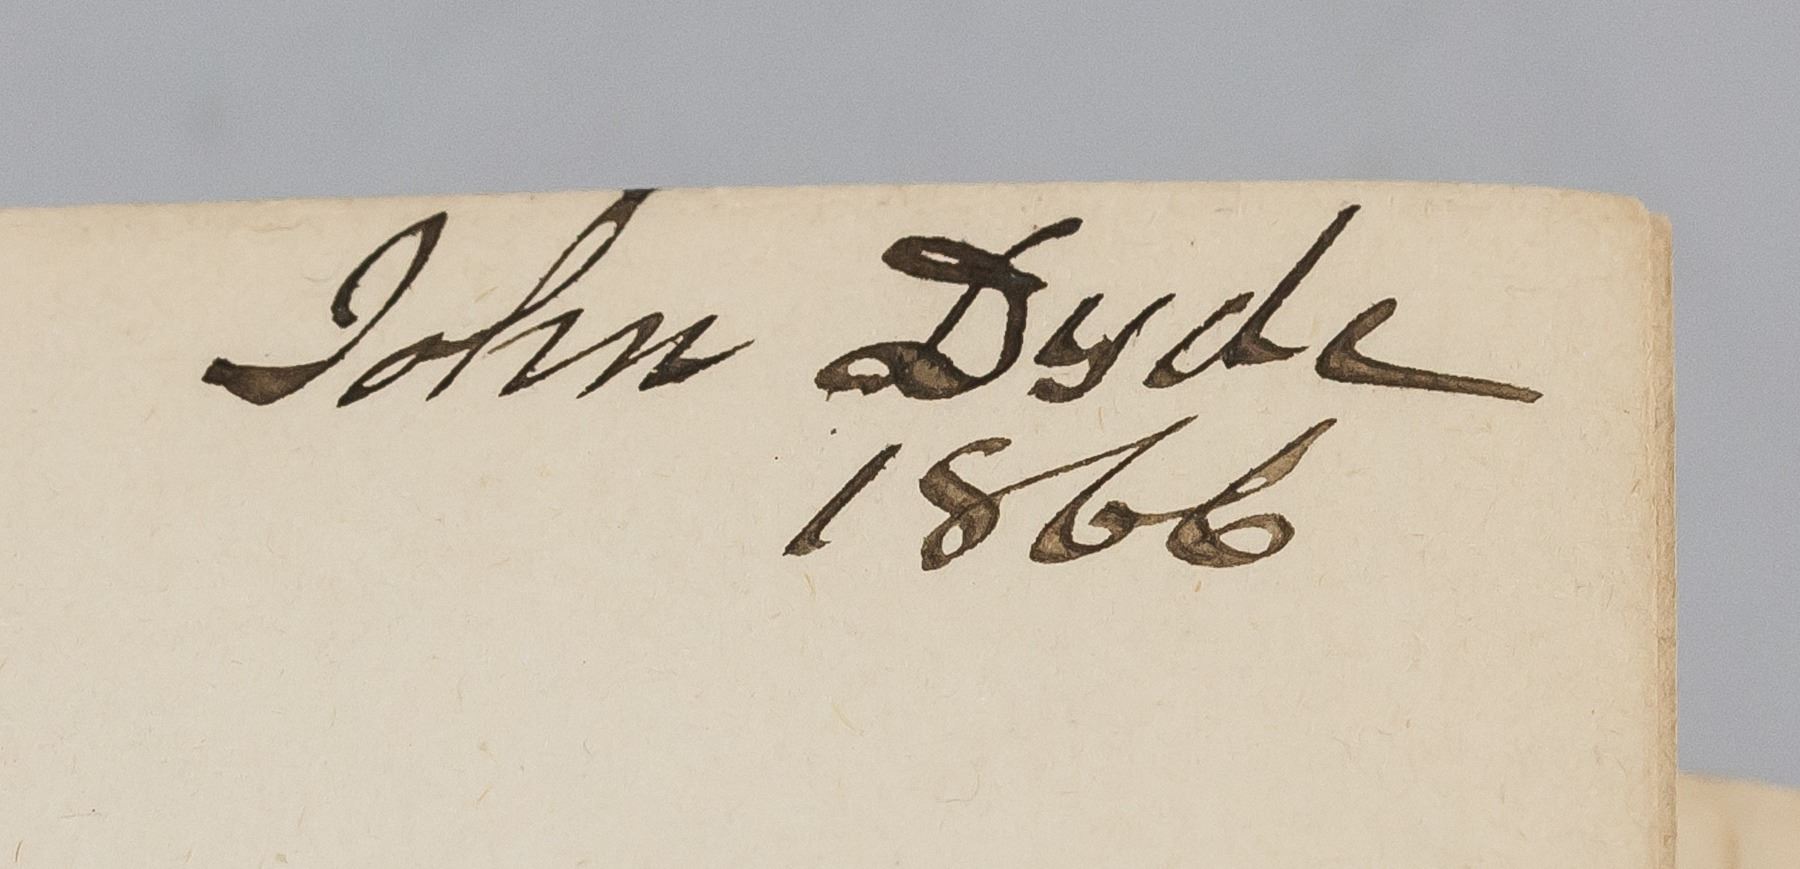 John Dyde
1866